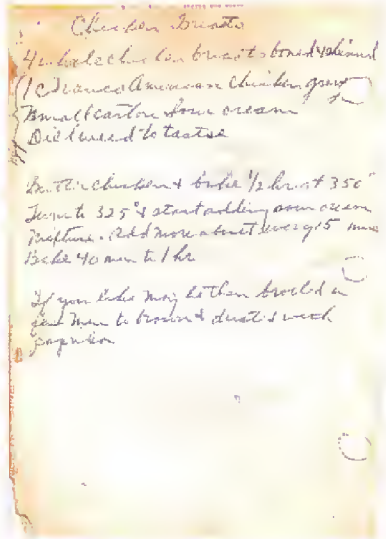 Chicken Breasts
4 whole chicken breasts boned & skinned
1 c Franco American Chicken gravy
1 small carton sour cream
Dill weed to taste
Butter chicken & bake 1/2 hr at 350°
Turn to 325° & start adding sour cream
Mixture. Add more about every 15 min
Bake 40 min to 1 hr
If you like may be then broiled a
few min to brown & dusted with
paprika